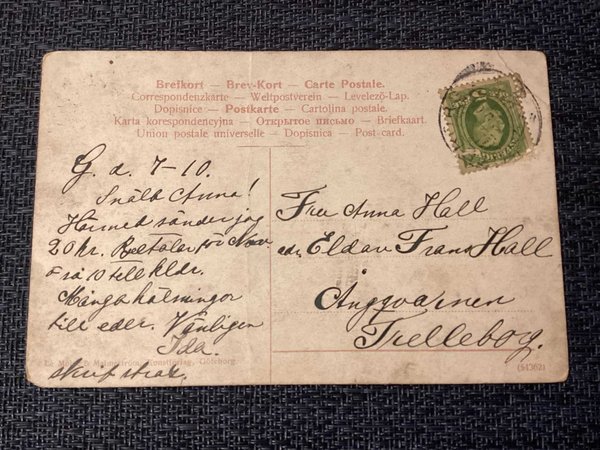 Brefkort - Brev-Kort - Carte Postale.
Correspondenzkarte - Weltpostverein - Levelező-Lap.
Dopisnice - Postkarte - Cartolina postale.
Karta korespondencyjna - Открытое письмо - Briefkaart.
Union postale universelle - Dopisnica - Post-card.
G. d. 7-10.
Snälla Anna!
Härmed sänder jag
20 kr. Betalar för
så 10 till
Många hälsningar
till eder. Vänligen
Ida.
skrif strax.
Fru Anna Hall
Eldar Frans Hall
Ångqvarnen
Trelleborg.
Konstförlag, Göteborg.
(54362)